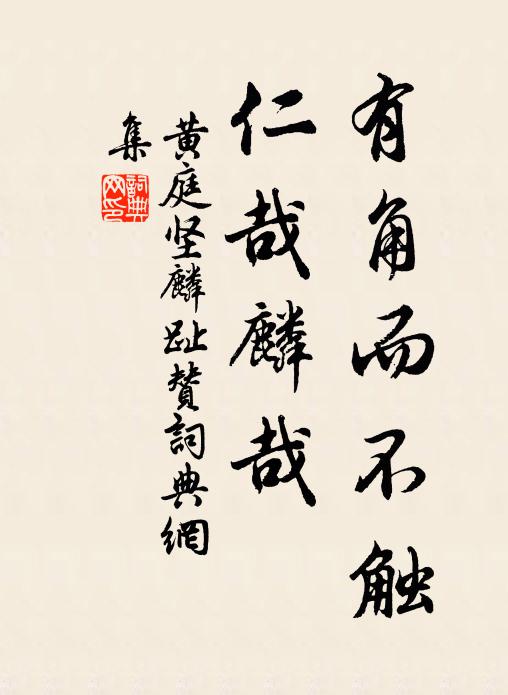 有角而不触
仁哉麟哉
黄庭坚麟趾赞词典網
集
詞典
网印